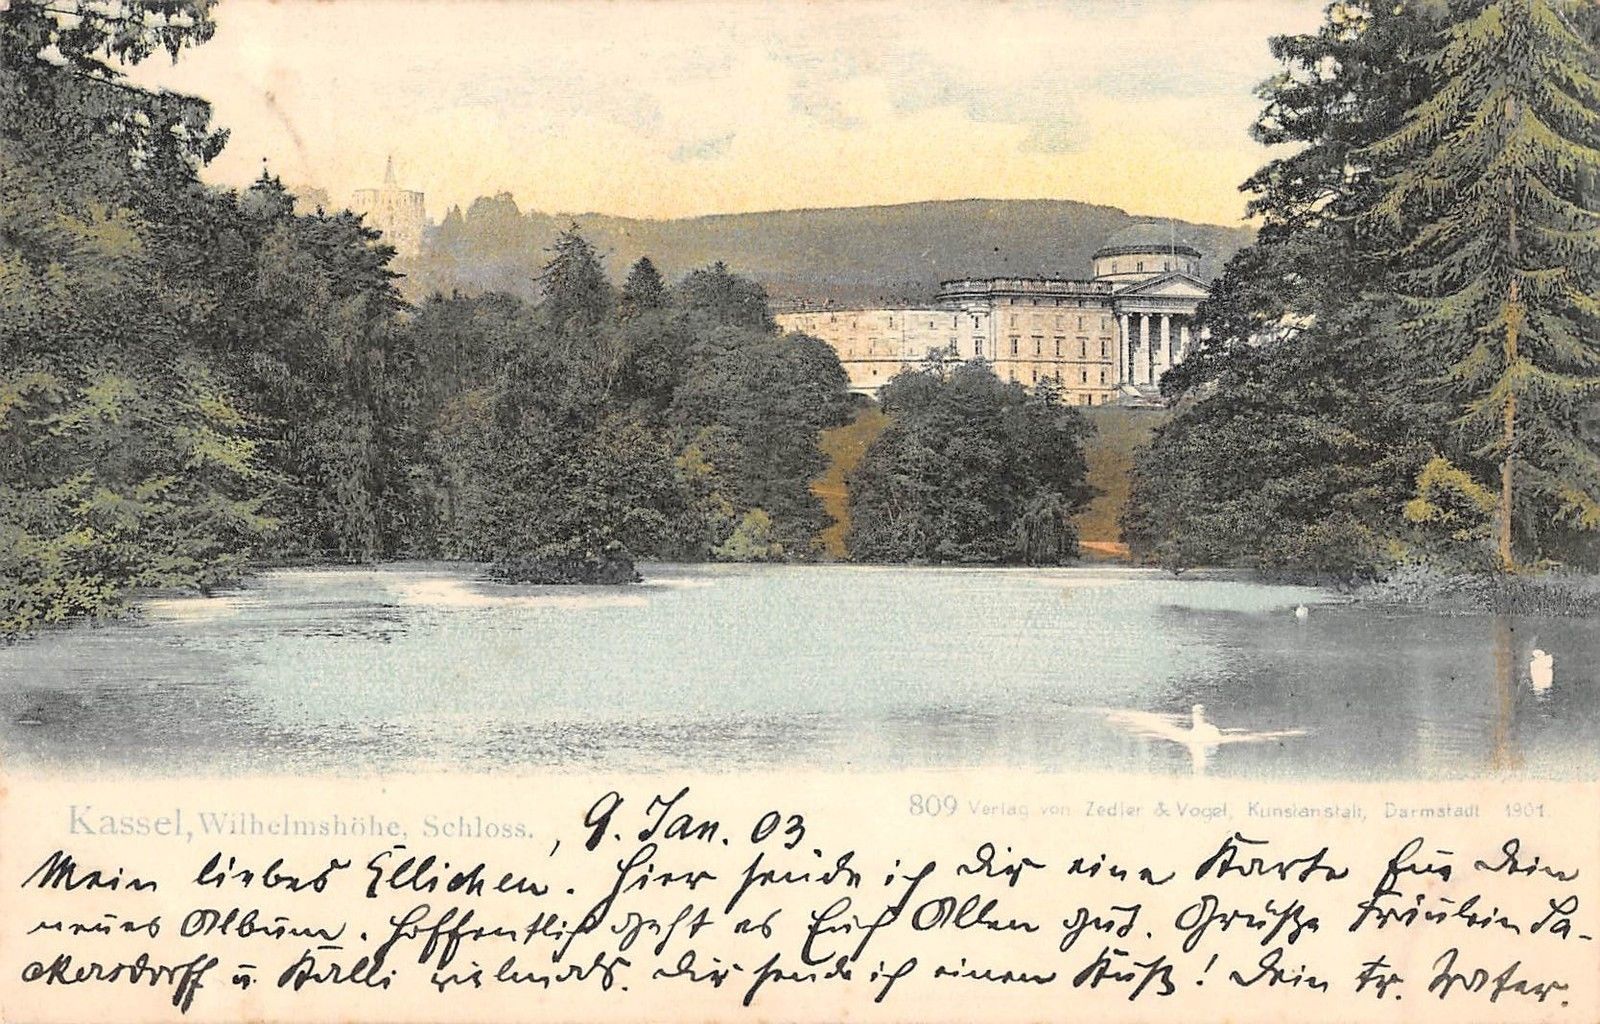 Kassel, Wilhelmshöhe, Schloss.
809 Verlag von Zedler & Vogel, Kunstanstalt, Darmstadt 1901.
, 9. Jan. 03.
Mein liebes Ellichen. Hier sende ich Dir eine Karte für Dein
neues Album. Hoffentlich geht es Euch Allen gut. Grüße Fräulein
u. Kalli vielmals. Dir sende ich einen Kuß! Dein tr. Vater.